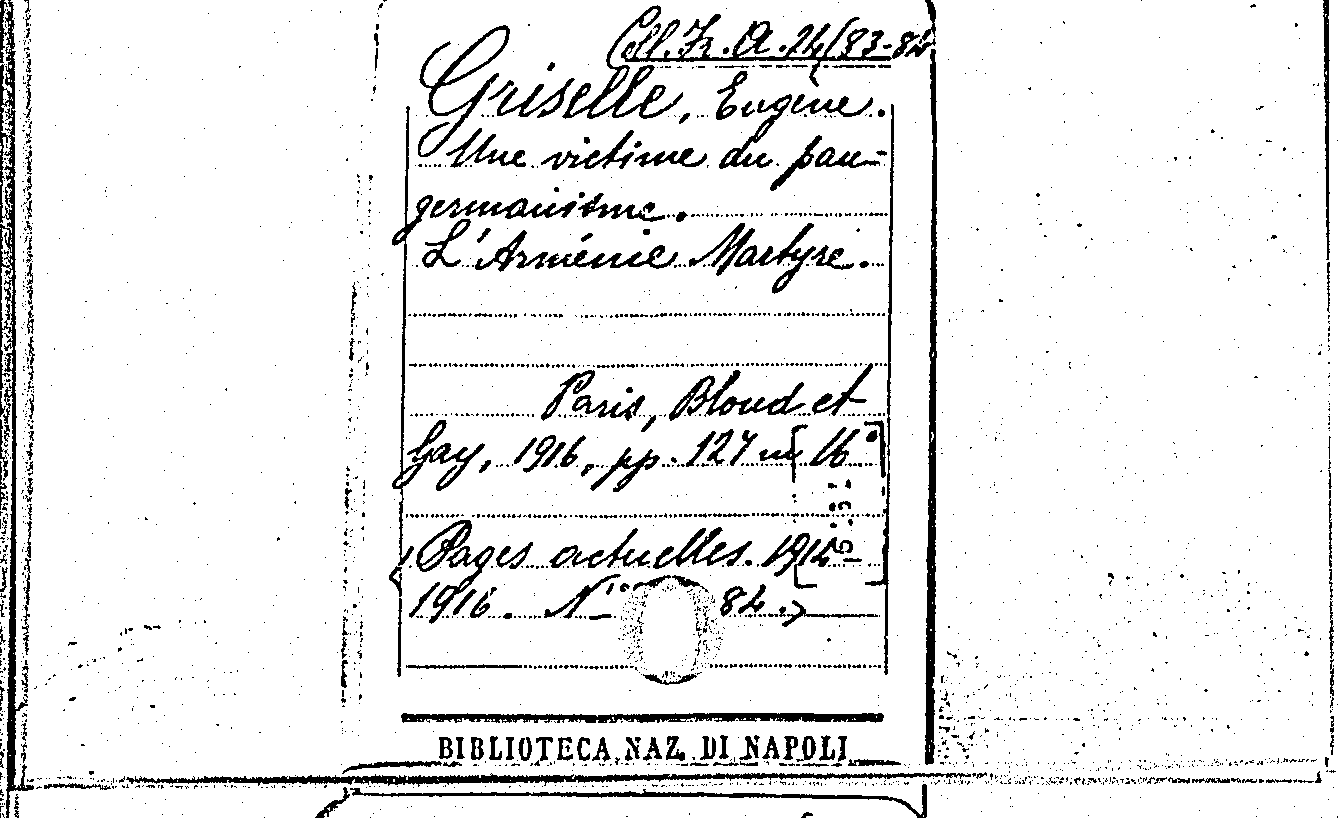 Coll. Fr. A. 24(83-84
Griselle, Eugène.
Une victime du pan-
germanisme.
L'Arménie Martyre.
Paris, Bloud et
Gay, 1916, pp. 127 in [16°]
Pages actuelles. 1914
1916. N.ⁱ 84.>
BIBLIOTECA NAZ. DI NAPOLI